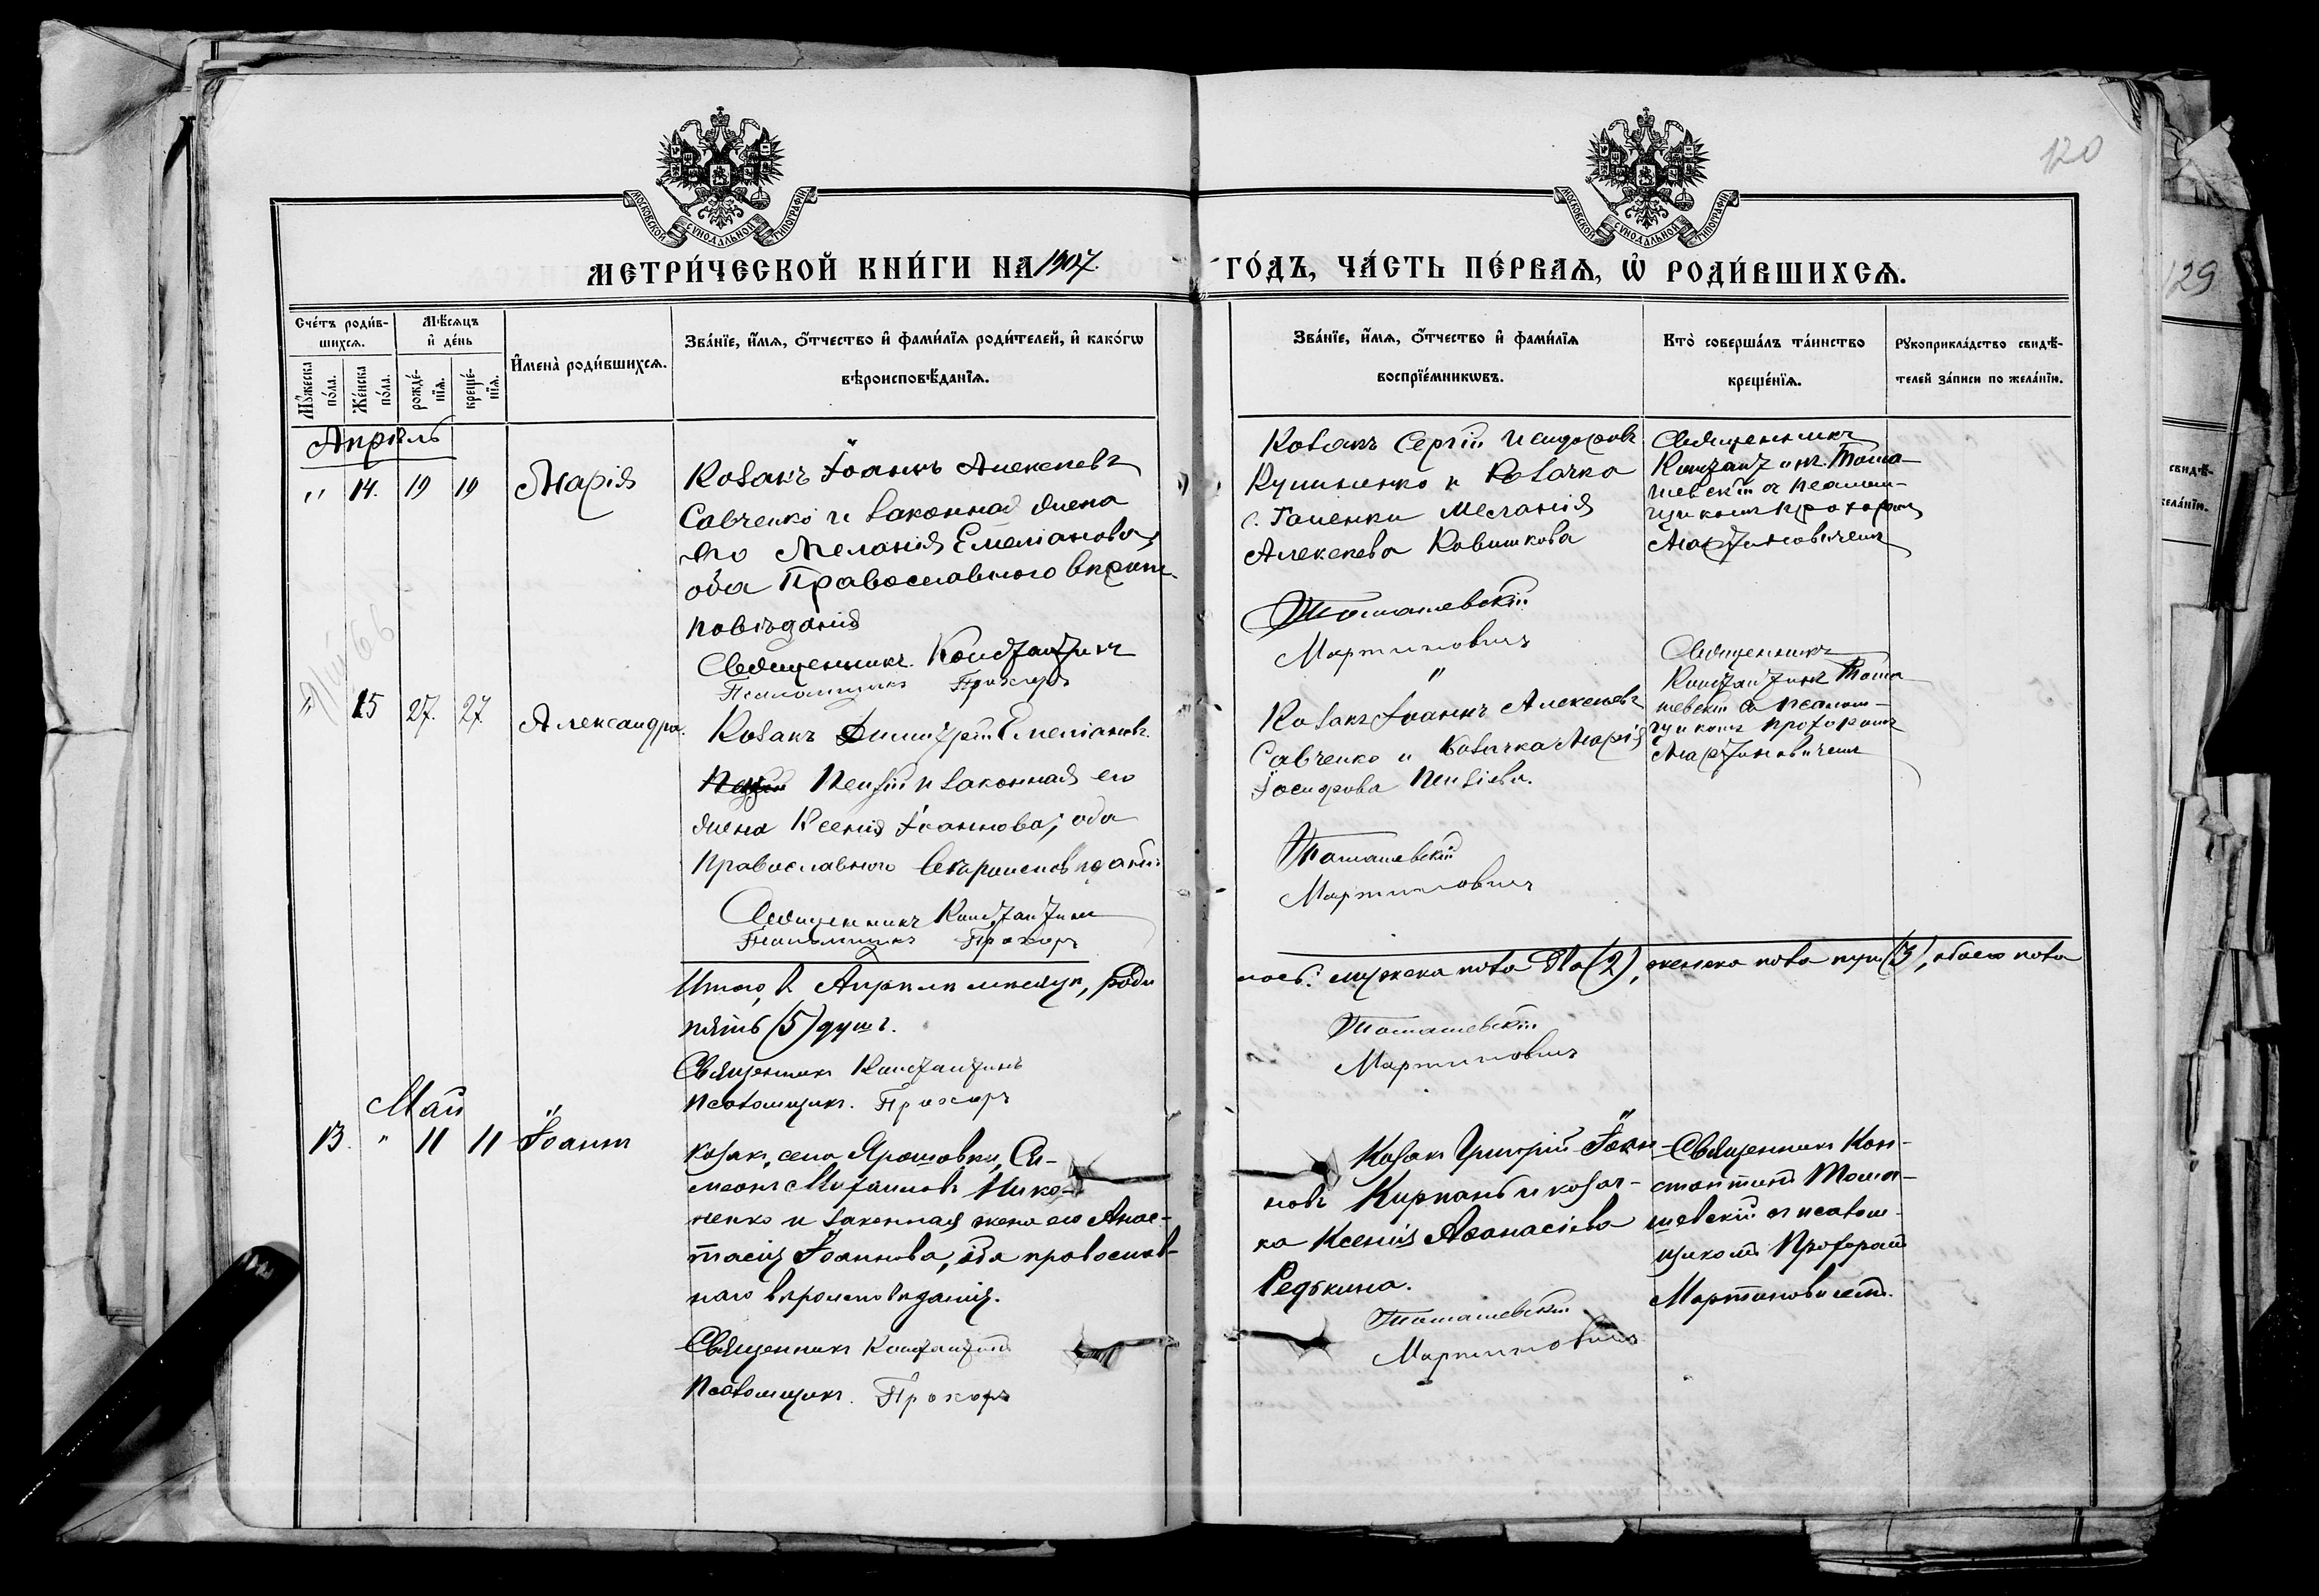 120
МОСКОВСКОЙ СУНОДАЛЬНОЙ ТИПОГРАФІИ
МОСКОВСКОЙ СУНОДАЛЬНОЙ ТИПОГРАФІИ
МЕТРИ́ЧЕСКОЙ КНИ́ГИ НА 1907.
ГО́ДЪ, ЧА́СТЬ ПЕ́РВАѦ, Ѡ҆ РОДИ́ВШИХСѦ.
129
Сче́тъ роди́в-
шихсѧ.
Мꙋ́жеска по́ла.
Же́нска по́ла.
Мѣ́сѧцъ
и҆ де́нь
рожде́-
нїѧ.
креще́-
нїѧ.
И҆мена̀ роди́вшихсѧ.
Зва́нїе, и҆́мѧ, ѻ҆́тчество и҆ фами́лїѧ роди́телей, и҆ како́гѡ
вѣроисповѣ́данїѧ.
Зва́нїе, и҆́мѧ, ѻ҆́тчество и҆ фами́лїѧ
воспрїе́мникѡвъ.
Кто̀ соверша́лъ та́инство
креще́нїѧ.
Рꙋкоприкла́дство свидѣ́-
телей за́писи по жела́нїю.
Апрѣль
" 14. 19 19 Марія
Козакъ Іоаннъ Алексѣевъ
Савченко и законная жена
его Меланія Емеліанова,
оба Православнаго вѣроис-
повѣданія
Священникъ Константинъ
Псаломщикъ Прохоръ
Козакъ Сергій Исидоровъ
и Козачка
Меланія
Алексѣева
Томашевскій
Мартиновичъ
Священникъ
Константинъ Тома-
шевскій съ псалом-
щикомъ Прохоромъ
Мартиновичемъ
" 15 27. 27 Александра.
Козакъ Димитрій Емеліановъ
и законная его
жена Ксенія Іоаннова, оба
Православнаго вѣроисповѣданія
Священникъ Константинъ
Псаломщикъ Прохоръ
Козакъ Іоаннъ Алексѣевъ
Савченко и козачка Марія
Томашевскій
Мартиновичъ
Священникъ
Константинъ Тома-
шевскій съ псалом-
щикомъ Прохоромъ
Мартиновичемъ
Итого, въ Апрѣлѣ мѣсяцѣ, роди
лось: мужеска пола два (2), женска пола три (3), обоего пола
пять (5) душъ.
Священникъ Константинъ
Псаломщикъ. Прохоръ
Томашевскій
Мартиновичъ
Май
13. " 11 11 Іоаннъ
Козакъ, села Ярошовки, Си-
меонъ Михаиловъ Нико-
ненко и законная жена его Анас-
тасія Іоаннова, оба православ-
наго вѣроисповѣданія.
Священникъ Константинъ
Псаломщикъ. Прохоръ
Козакъ Григорій Іоан-
новъ Кирпань и козач-
ка Ксенія Аѳанасіева
Редькина.
Томашевскій
Мартиновичъ
Священникъ Кон-
стантинъ Тома-
шевскій съ псалом-
щикомъ Прохоромъ
Мартиновичемъ.